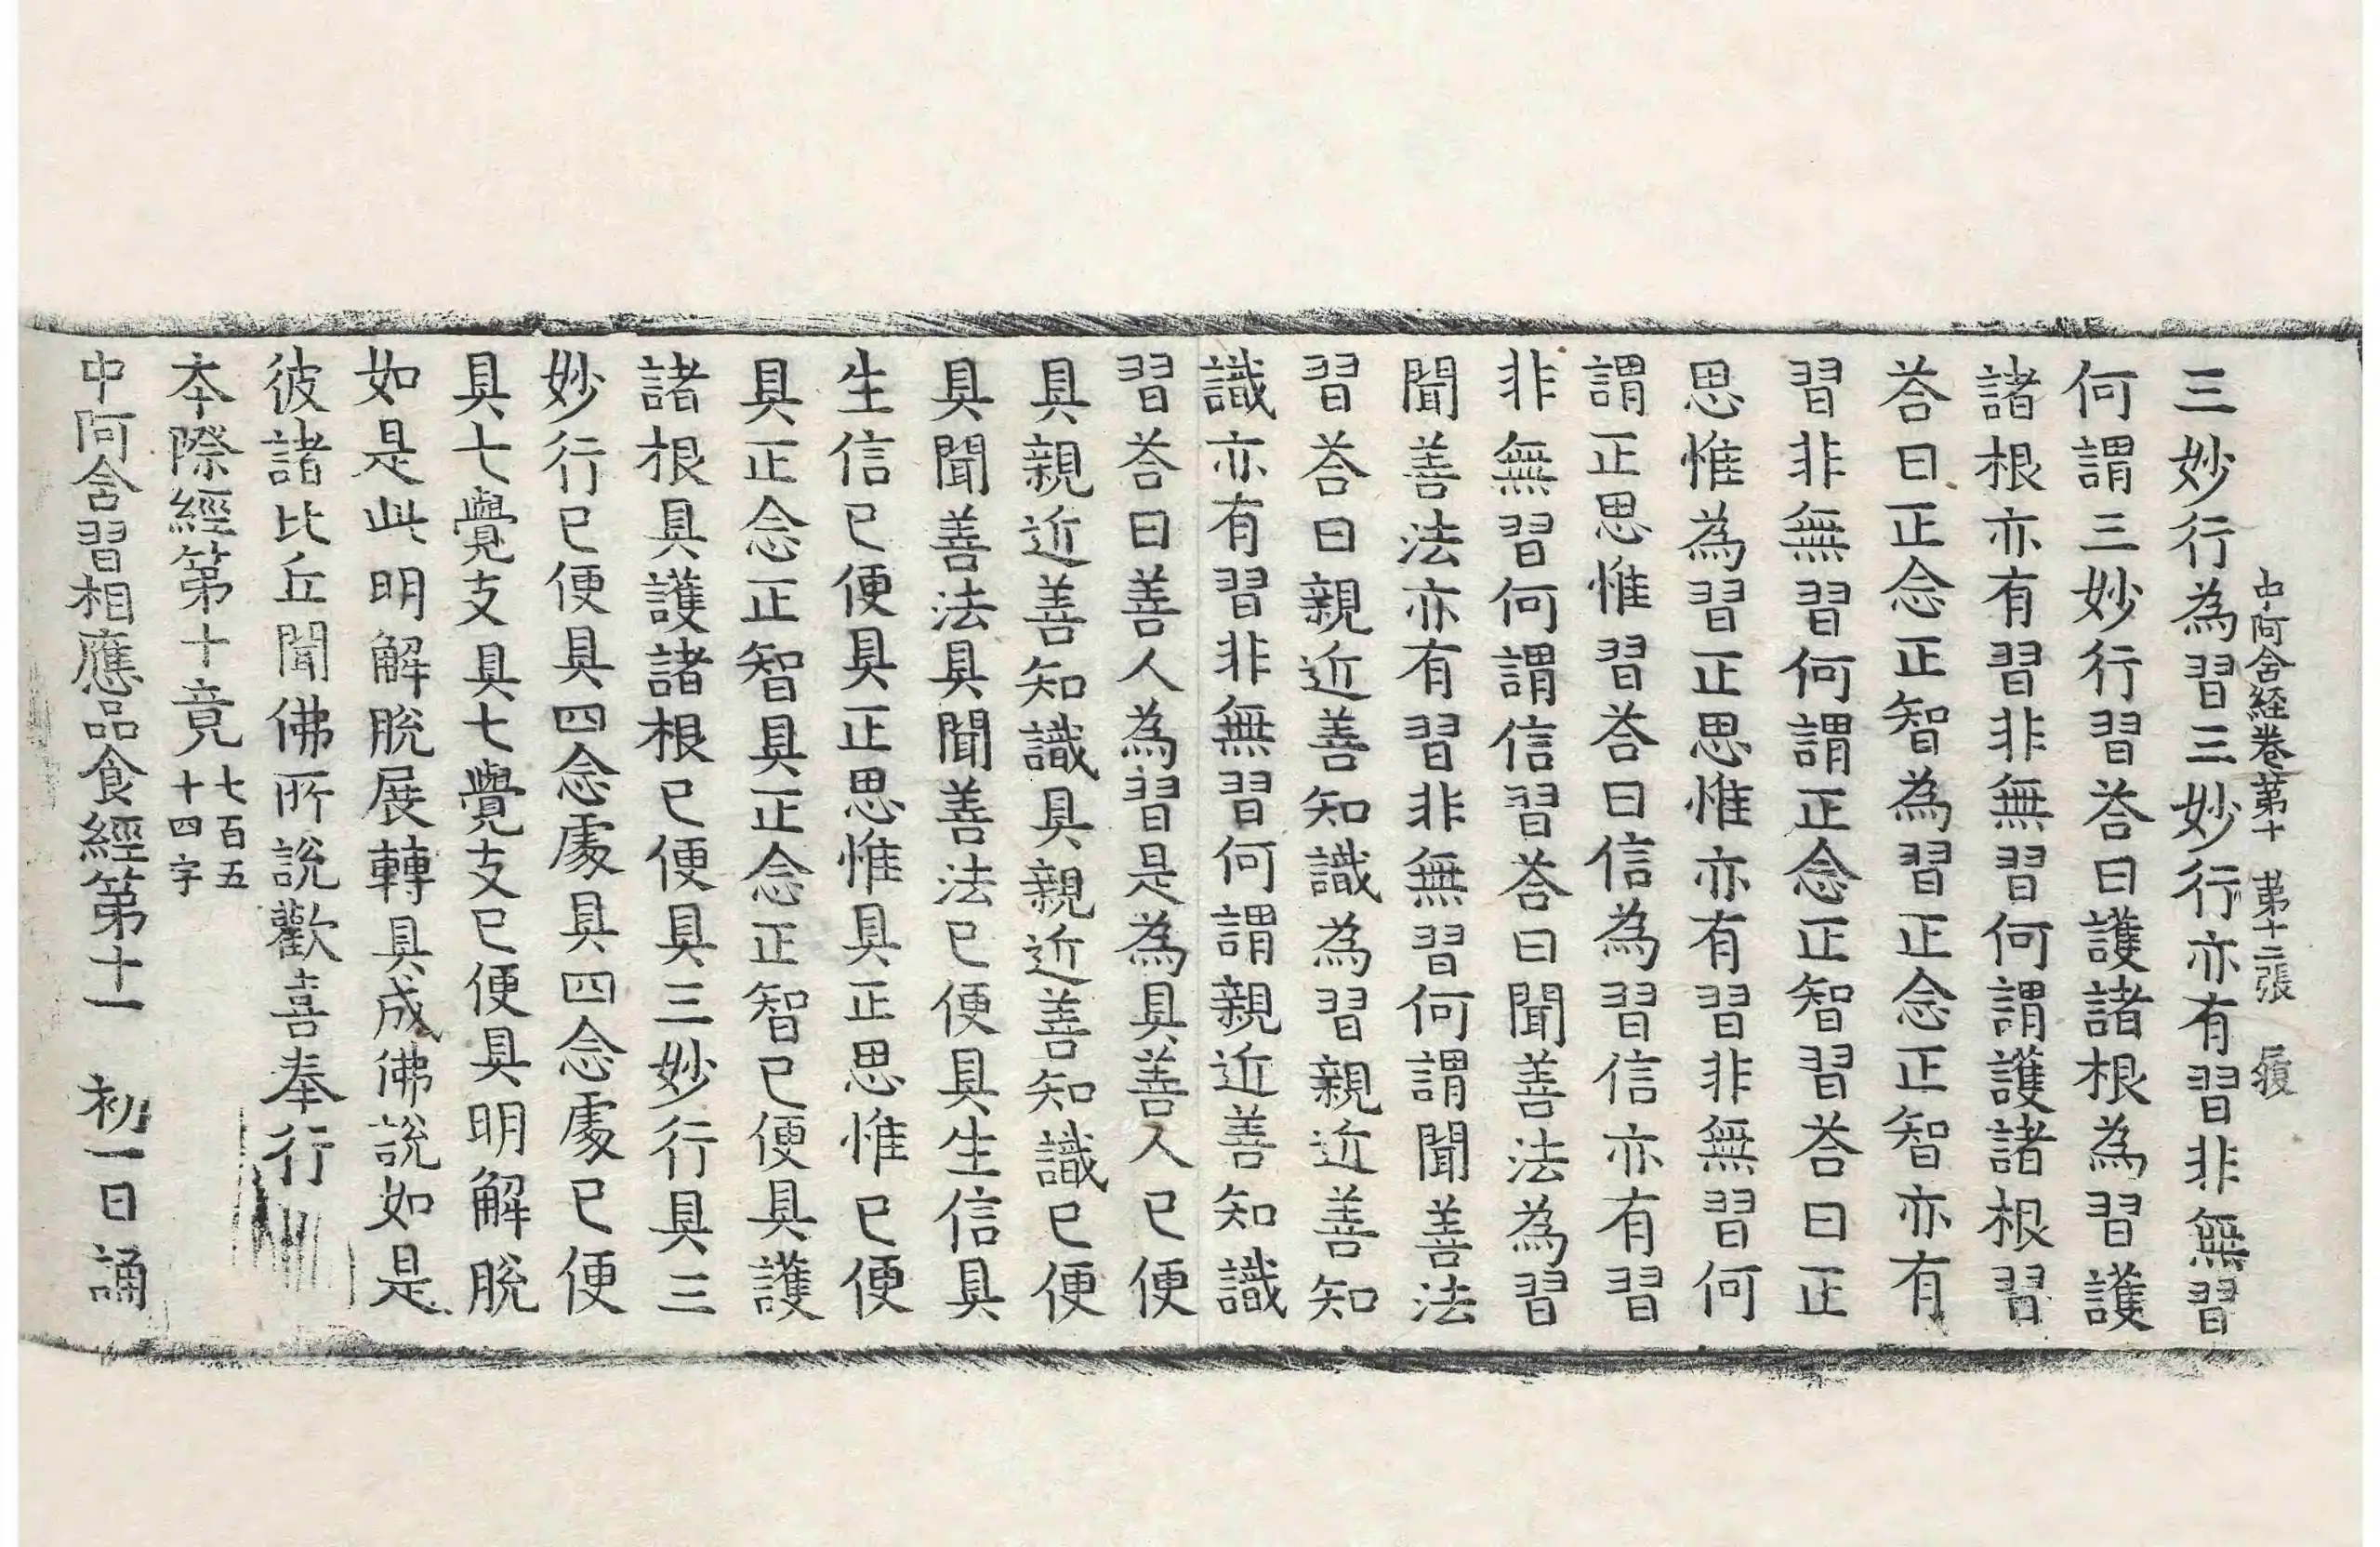 中阿含経卷第十　第十二張　履
三妙行為習三妙行亦有習非無習
何謂三妙行習荅曰護諸根為習護
諸根亦有習非無習何謂護諸根習
荅曰正念正智為習正念正智亦有
習非無習何謂正念正智習荅曰正
思惟為習正思惟亦有習非無習何
謂正思惟習荅曰信為習信亦有習
非無習何謂信習荅曰聞善法為習
聞善法亦有習非無習何謂聞善法
習荅曰親近善知識為習親近善知
識亦有習非無習何謂親近善知識
習荅曰善人為習是為具善人已便
具親近善知識具親近善知識已便
具聞善法具聞善法已便具生信具
生信已便具正思惟具正思惟已便
具正念正智具正念正智已便具護
諸根具護諸根已便具三妙行具三
妙行已便具四念處具四念處已便
具七覺支具七覺支已便具明解脫
如是此明解脫展轉具成佛說如是
彼諸比丘聞佛所說歡喜奉行
本際經第十竟七百五十四字
中阿含習相應品食經第十一　初一日誦